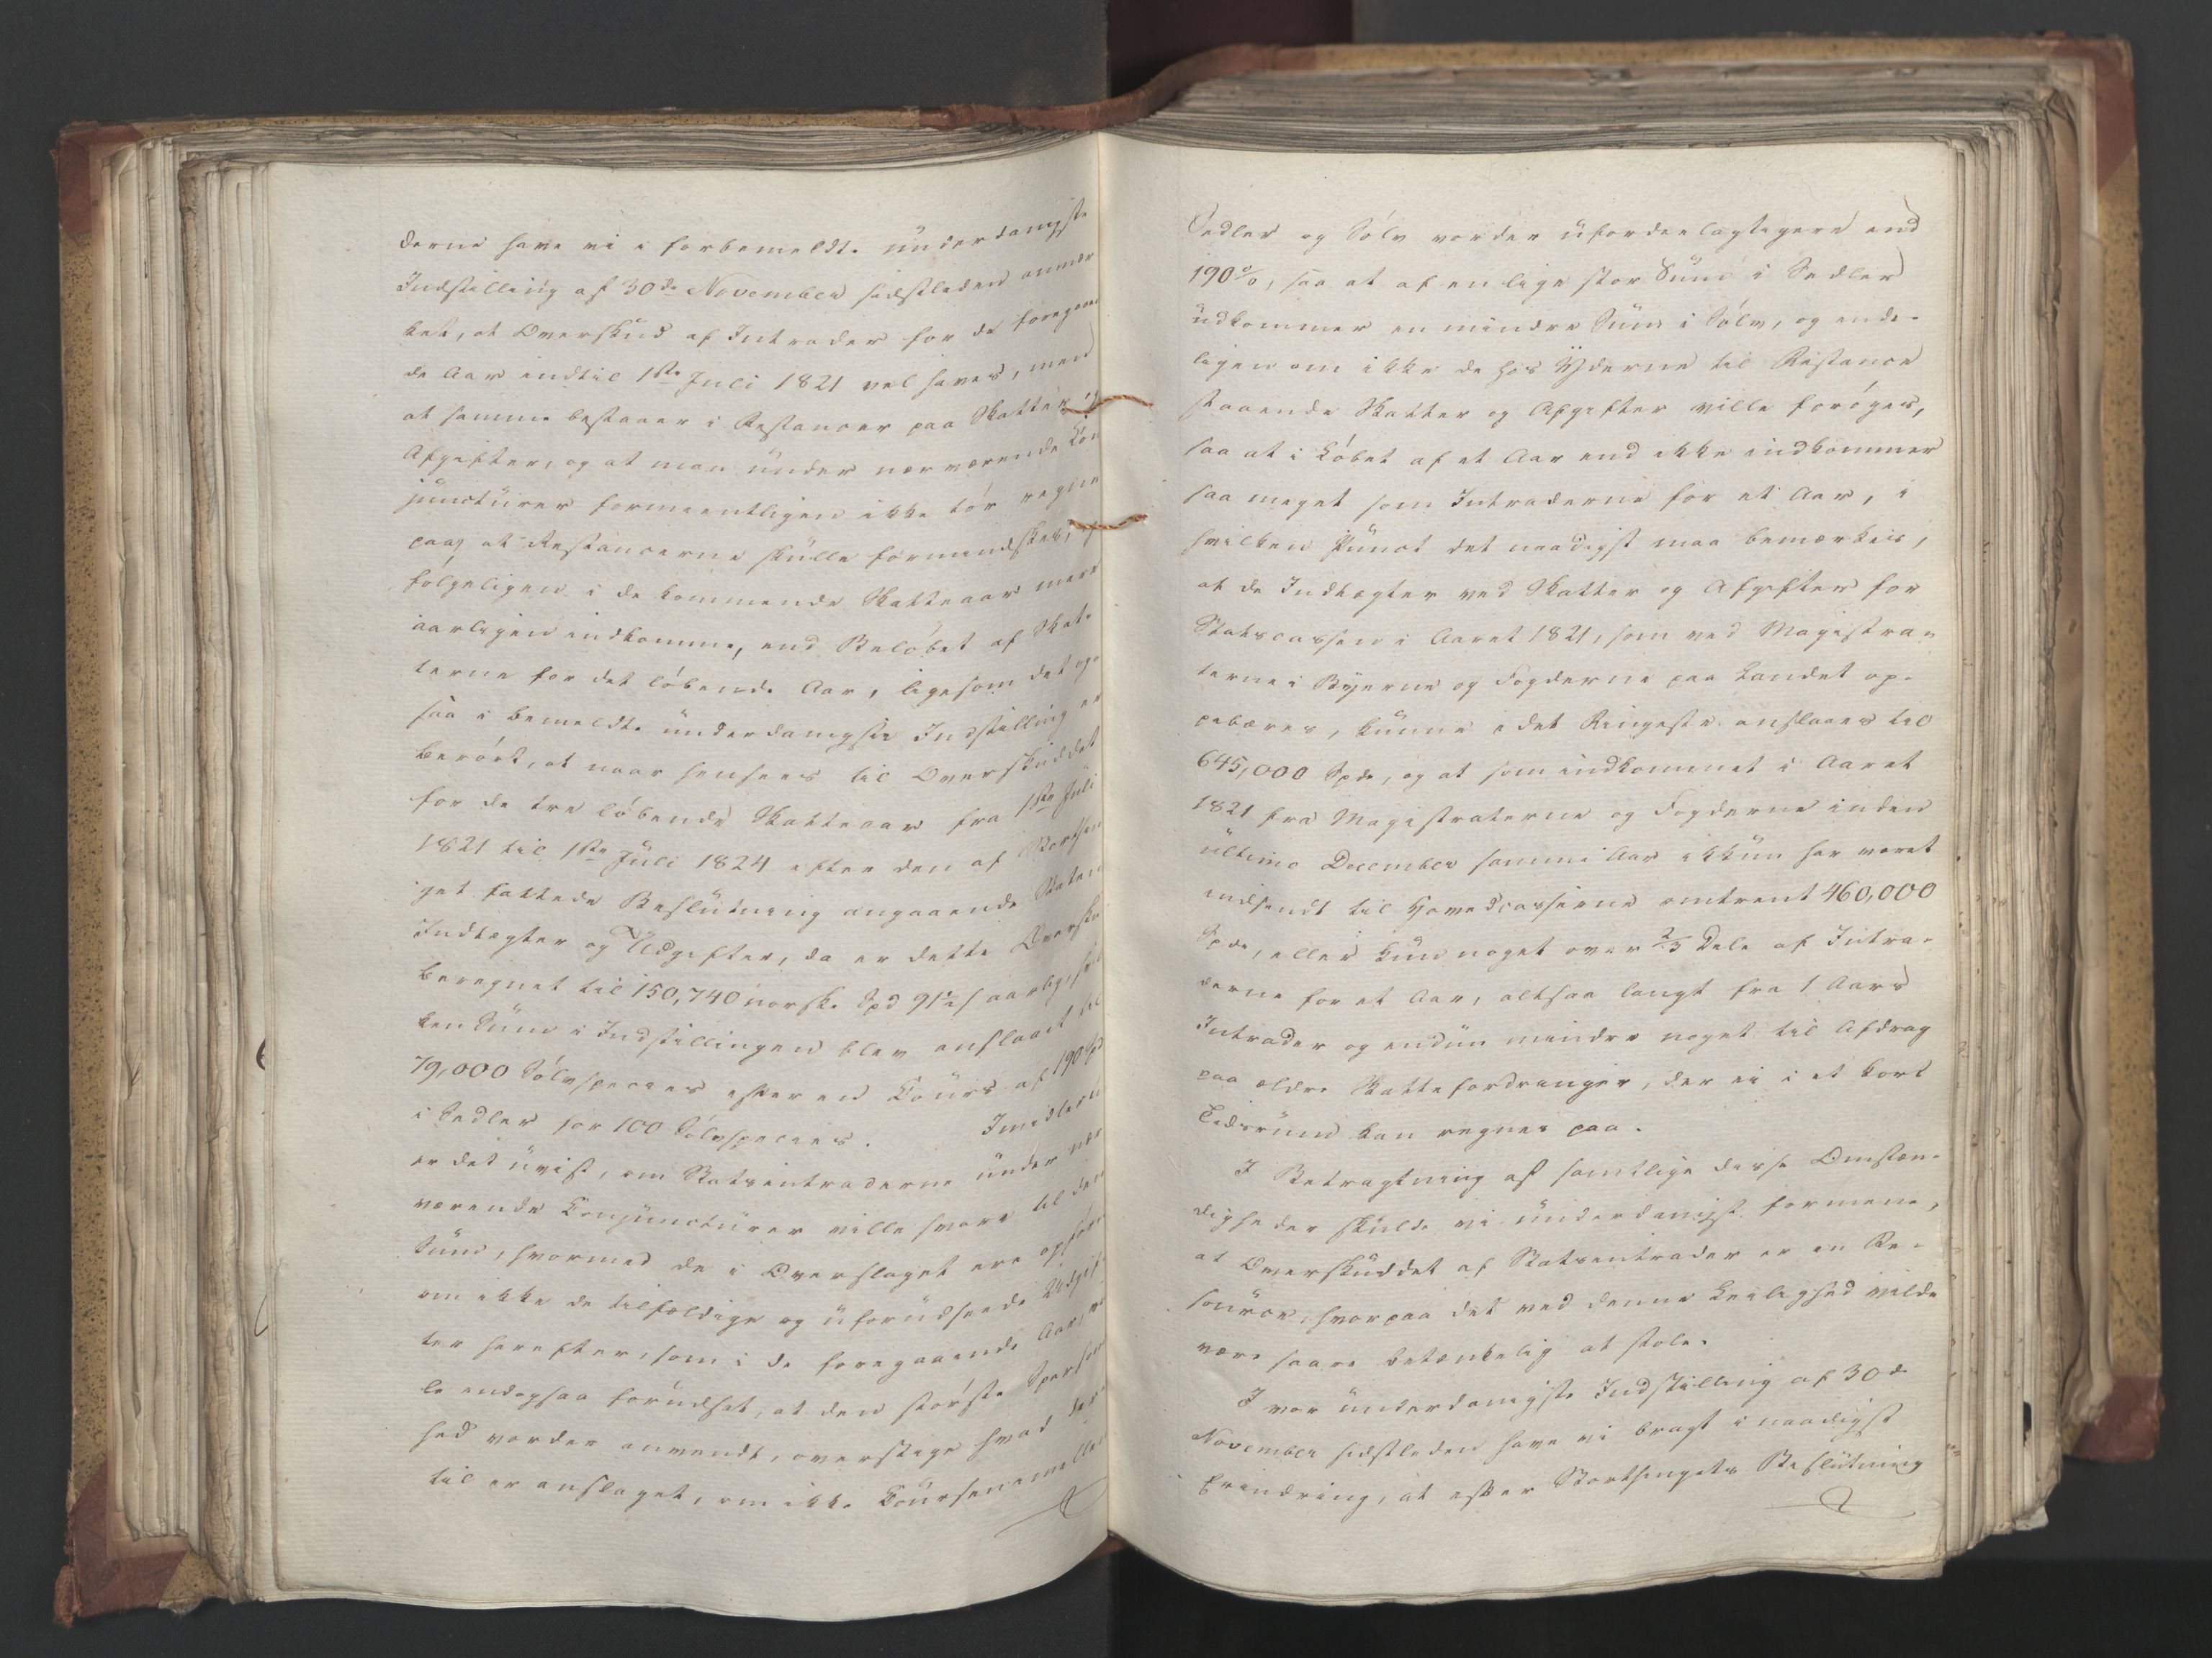 derne have vi i forbemeldte underdanigste
Indstilling af 30de November sidstleden anmær
ket, at Overskud af Intrader for de foregaaen
de Aar indtil 1ste Juli 1821 vel haves, men
at samme bestaaer i Restancer paa Skatter og
Afgifter, og at man under nærværende Con
juncturer formeentligen ikke tør regne
paa, at Restancerne skulle formindskes,
følgeligen i de kommende Skatteaar mere
aarligen indkomme, end Beløbet af Skat-
terne for det løbende Aar, ligesom det og-
saa i bemeldte underdanigste Indstilling er
berørt, at naar hensees til Overskuddet
for de tre løbende Skatteaar fra 1ste Juli
1821 til 1ste Juli 1824 efter den af Storthin
get fattede Beslutning angaaende Statens
Indtægter og Udgifter, da er dette Oversku
beregnet til 150,740 norske Spd 91½ s aarlig, hvil
ken Sum i Indstillingen blev anslaaet til
79,000 Sølvspecies efter en Cours af 190 Spd
i Sedler for 100 Sølvspecies. Imidlertid
er det uvist, om Statsintraderne under nær
værende Conjuncturer ville svare til den
Sum, hvormed de i Overslaget ere opførte
om ikke de tilfældige og uforudseede Udgif
ter herefter, som i de foregaaende Aar,
le endogsaa forudsat, at den største Sparsom
hed vorder anvendt, overstige hvad der
til er anslaget, om ikke Coursen mellem
Sedler og Sølv vorder ufordeelagtigere end
190 %, saa at af en lige stor Sum i Sedler
udkommer en mindre Sum i Sølv, og ende-
ligen om ikke de hos Yderne til Restance
staaende Skatter og Afgifter ville forøges,
saa at i Løbet af et Aar end ikke indkommer
saa meget som Intraderne for et Aar, i
hvilken Punct det naadigst maa bemærkes,
at de Indtægter ved Skatter og Afgifter for
Statscassen i Aaret 1821, som ved Magistra-
terne i Byerne og Fogderne paa Landet op-
pebæres, kunne i det Ringeste anslaaes til
645,000 Spd, og at som indkommet i Aaret
1821 fra Magistraterne og Fogderne inden
ultimo December samme Aar ikkun har været
indsendt til Hovedcasserne omtrent 460,000
Spd, eller kun noget over 2/3 Dele af Intra-
derne for et Aar, altsaa langt fra 1 Aars
Intrader og endnu mindre noget til Afdrag
paa ældre Skattefordringer, der ei i et kort
Tidsrum kan regnes paa.
I Betragtning af samtlige disse Omstæn-
digheder skulde vi underdanigst formene,
at Overskuddet af Statsintrader er en Re-
source, hvorpaa det ved denne Leilighed vilde
være saare betænkelig at stole.
I vor underdanigste Indstilling af 30de
November sidstleden have vi bragt i naadigst
Erindring, at efter Storthingets Beslutning